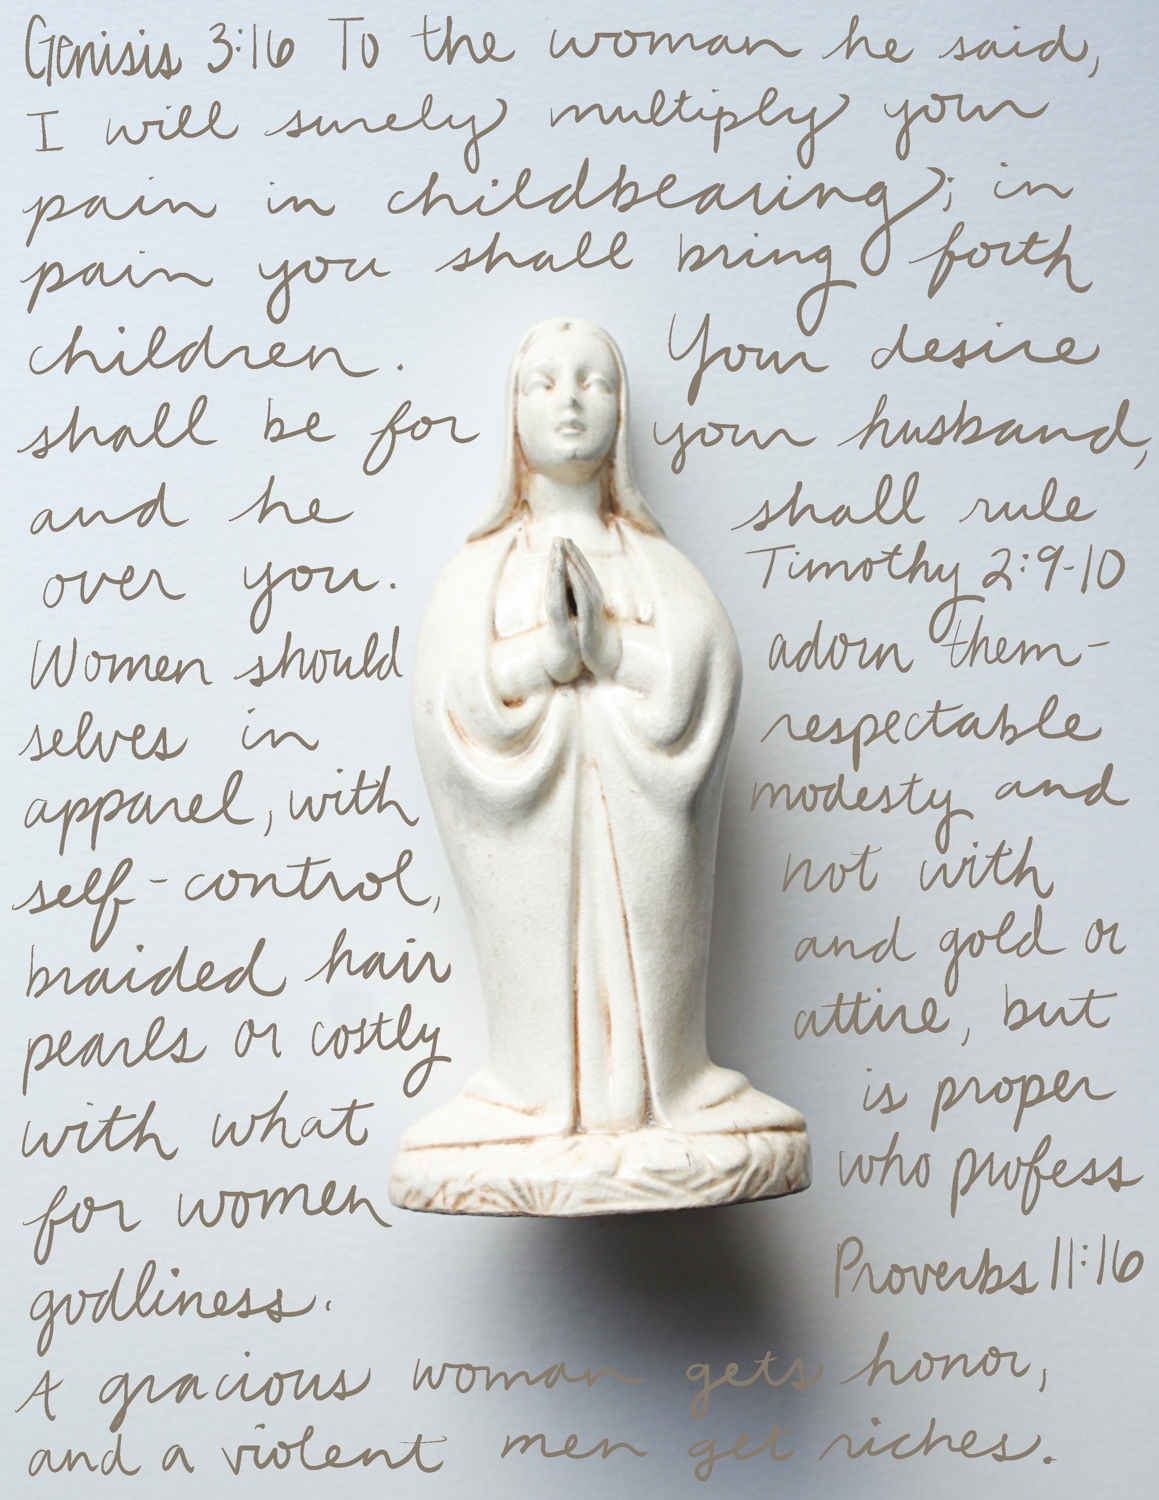 Genisis 3:16 To the woman he said,
I will surely multiply your
pain in childbearing; in
pain you shall bring forth
children. Your desire
shall be for your husband,
and he shall rule
over you. Timothy 2:9-10
Women should adorn them-
selves in respectable
apparel, with modesty and
self-control, not with
braided hair and gold or
pearls or costly attire, but
with what is proper
for women who profess
godliness. Proverbs 11:16
A gracious woman gets honor,
and a violent men get riches.